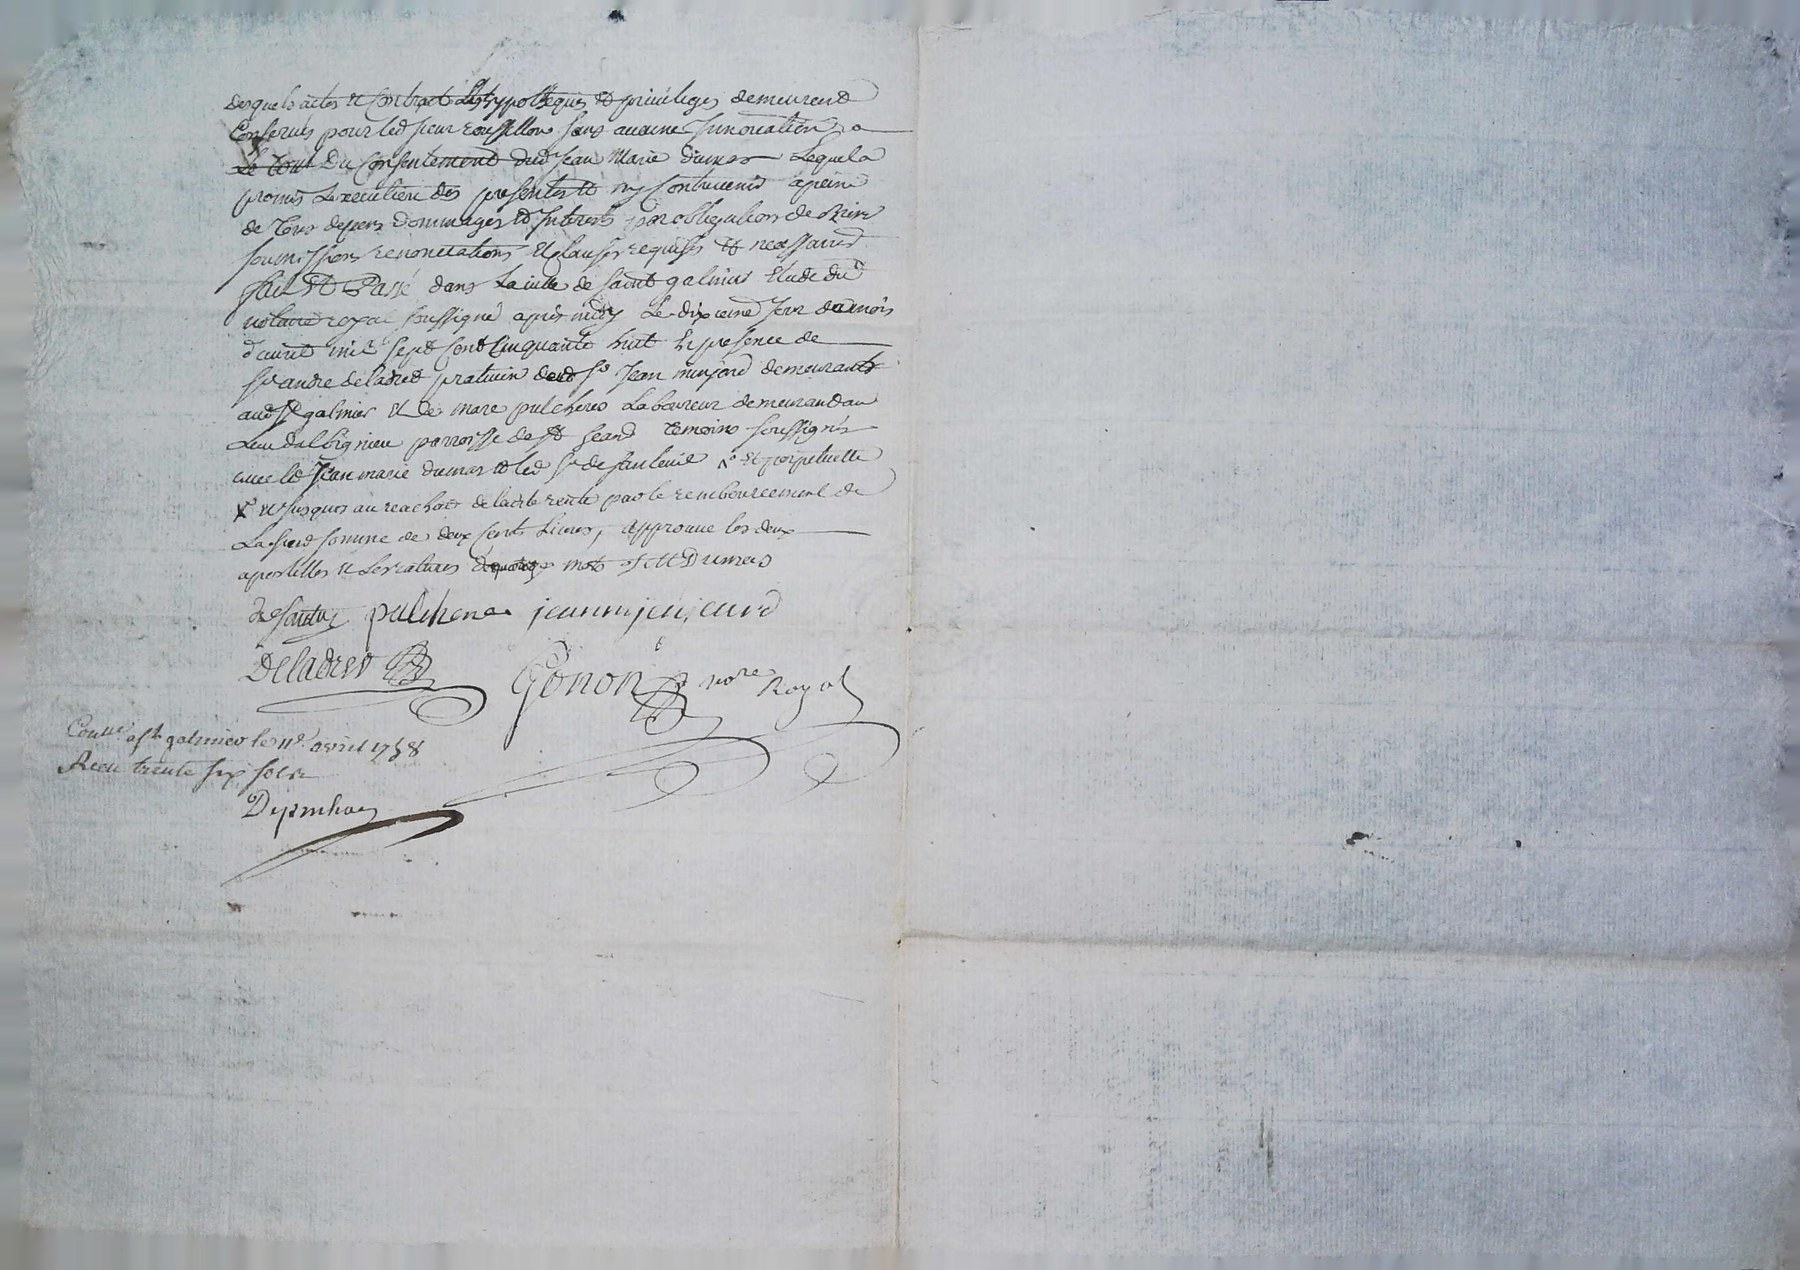 desquels actes et Contract Les hypotheques et privileges demeurent
Conservés pour led sieur roussillon sans aucune Innovation a
Le Tout Du Consentement dud Jean Marie dumas Lequel a
promis Lexecution des presentes et ny Contrevenir apeine
de Tous depens dommages et Interests par obligation de Biens
soumissions renonciations et clauses requises et necessaires
fait et Passé dans La ville de Saint galmier Etude du d
notaire royal soussigné après midy Le dixieme Jour du mois
d'avril mil sept Cent Cinquante huit En presence de
sr andre deladret praticien et de sr Jean demourants
aud St galmier et de marc pulcheres Laboureur demeurand au
Lieu dalbignieu parroisse de St temoins soussignés
avec led Jean marie dumas et led sr de et perpetuelle
x et Jusques au reachat de ladte rente par le remboursement de
La susd somme de deux Cents Livres, approuve les deux
apostilles et Les ratures de mots J M Dumas
pulchere
Deladret Gonon nore Royal
Conllé a St galmier le 11e avril 1758
Receu trente six sols